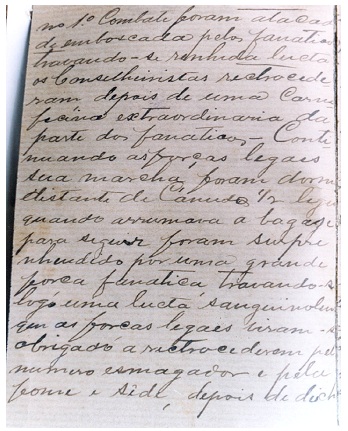 no 1º Combate foram atacad
de emboscada pelos fanatico
travando-se renhida lucta
os Conselheiristas rectrocede
ram depois de uma Carni
ficina extraordinaria da
parte dos fanaticos - Conti
nuando as forças legaes
sua marcha, foram dorm
distante de Canudo 1/2 legu
quando arrumava a bagage
para seguir foram surpre
nhendido por uma grande
força fanatica, travando-s
logo uma lucta sanguinolen
que as forcas legaes viram-s
obrigado a rectrocederem pel
numero esmagador e pela
fome e sêde, depois de deich